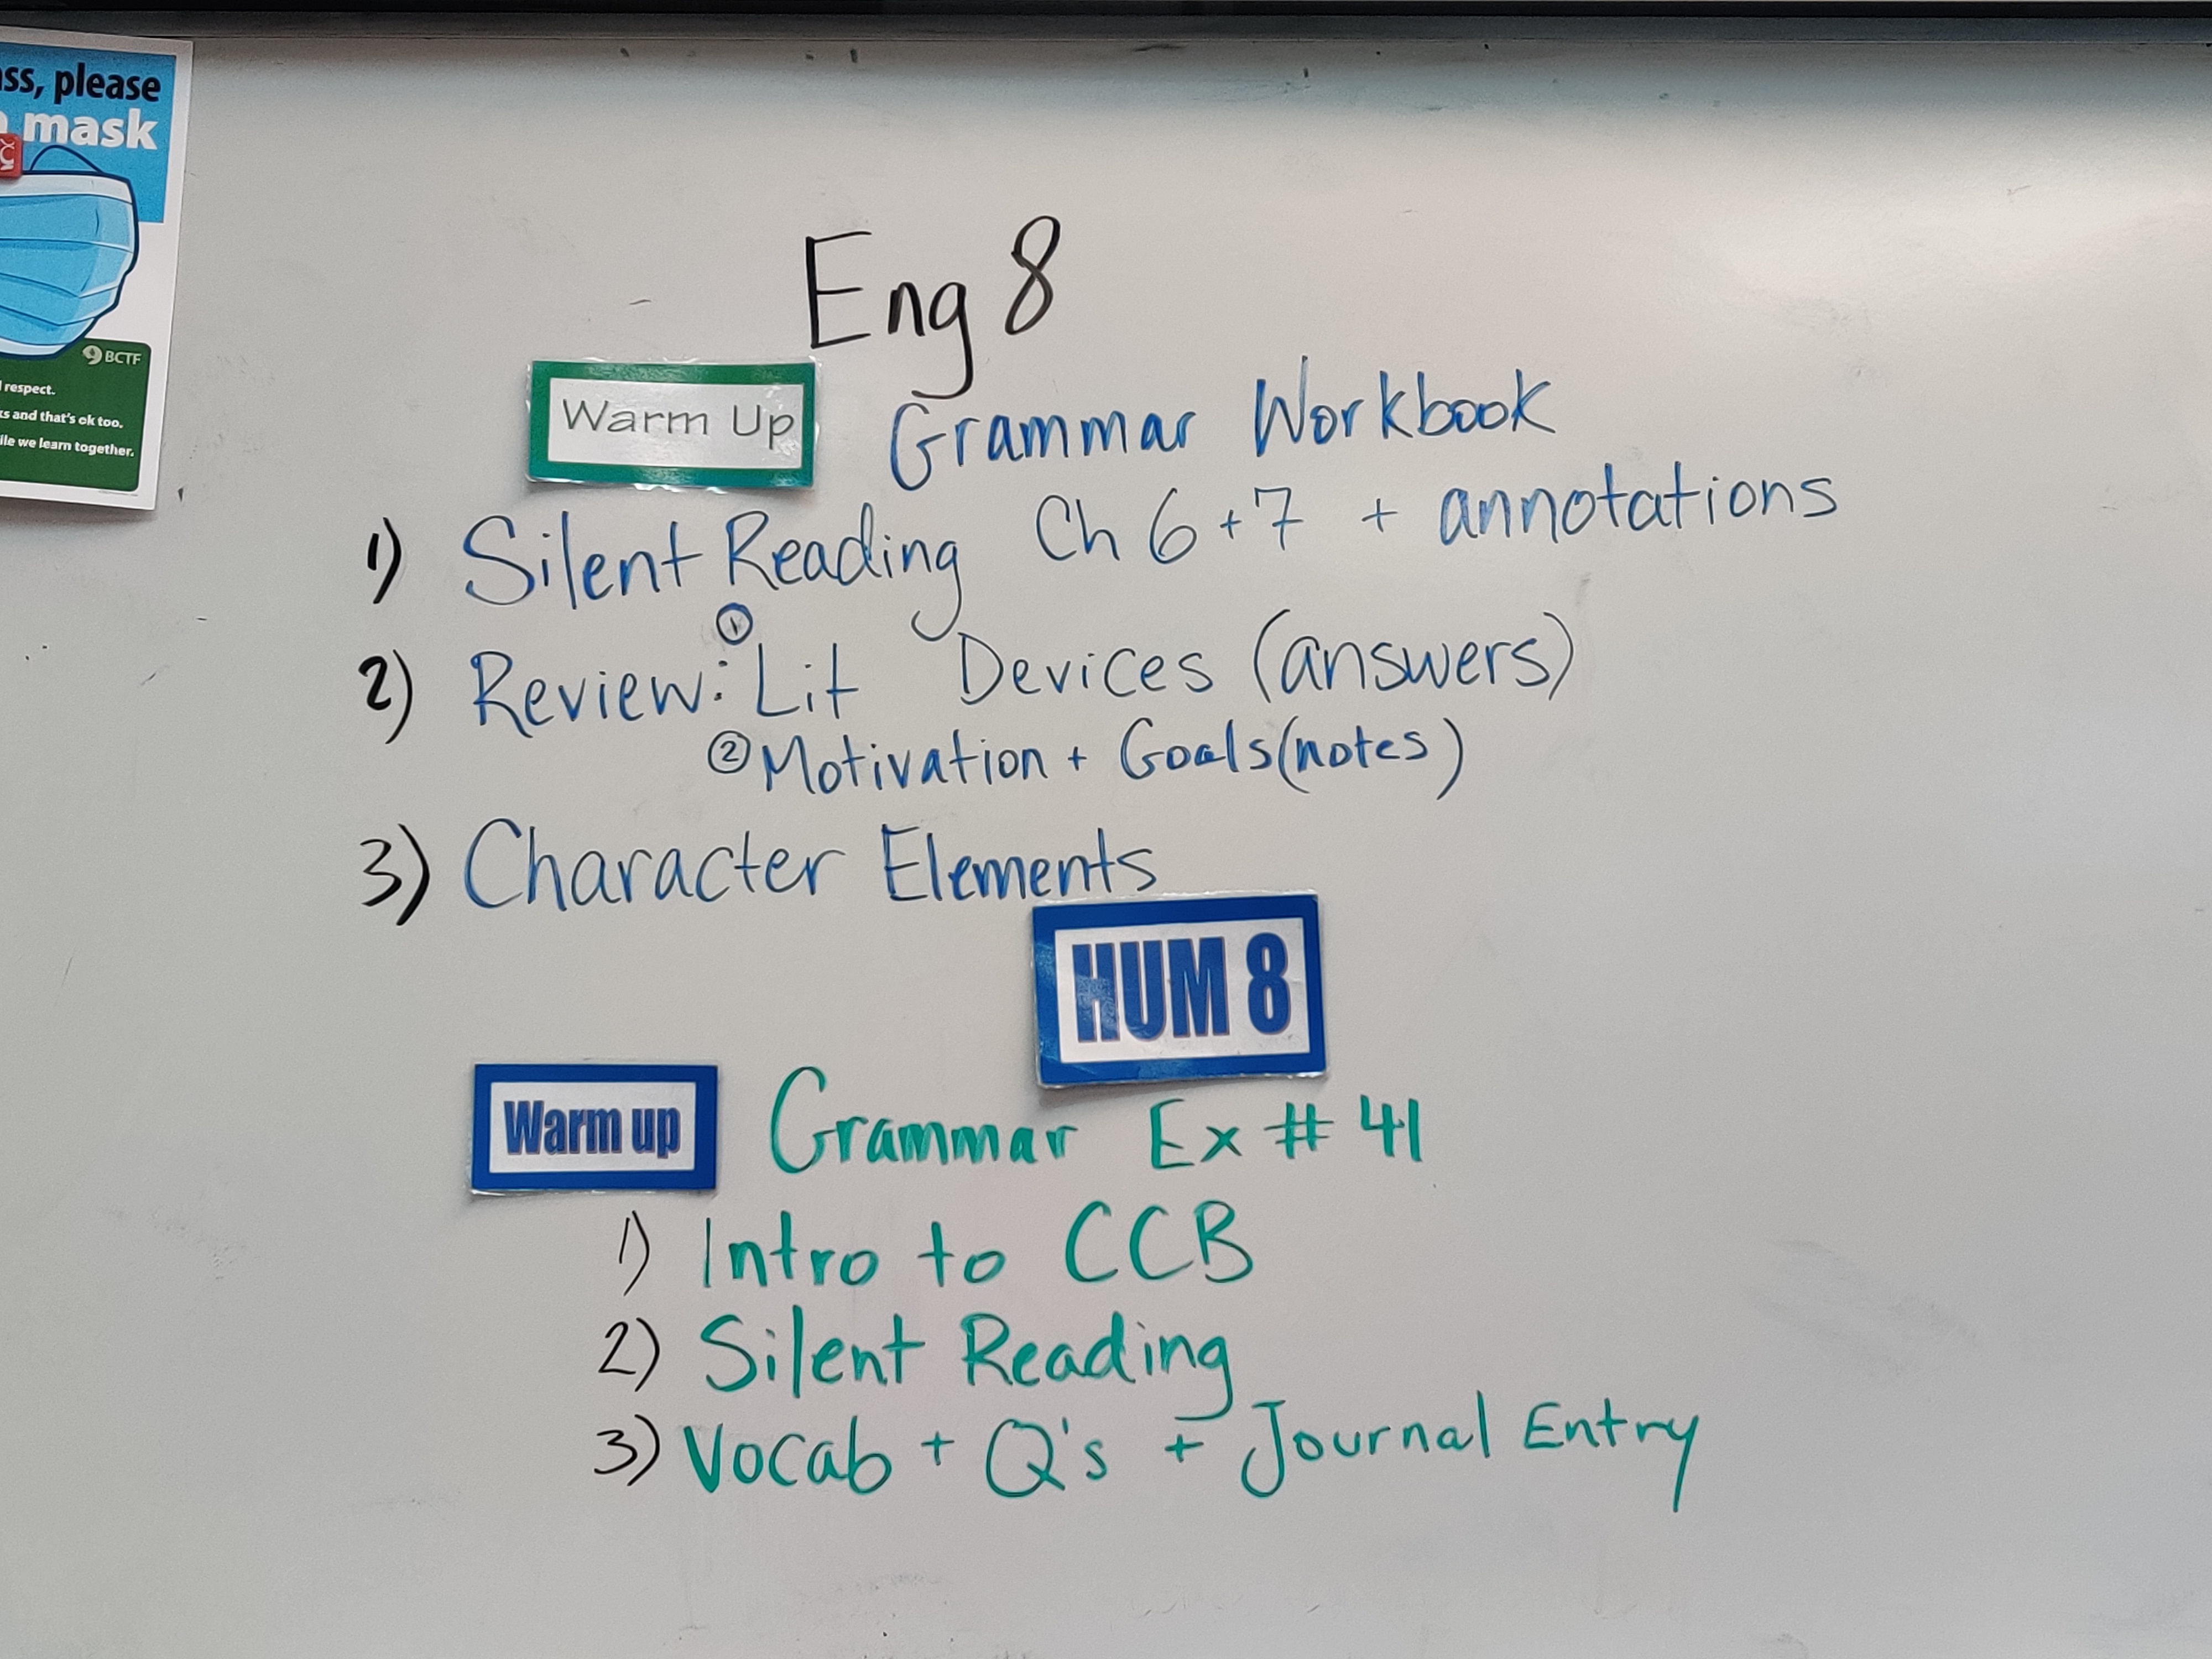 ss, please
mask
BCTF
respect.
s and that's ok too.
ile we learn together.
Eng 8
Warm Up Grammar Workbook
1) Silent Reading Ch 6 + 7 + annotations
2) Review: ① Lit Devices (answers)
② Motivation + Goals (notes)
3) Character Elements
HUM 8
Warm up Grammar Ex # 41
1) Intro to CCB
2) Silent Reading
3) Vocab + Q's + Journal Entry